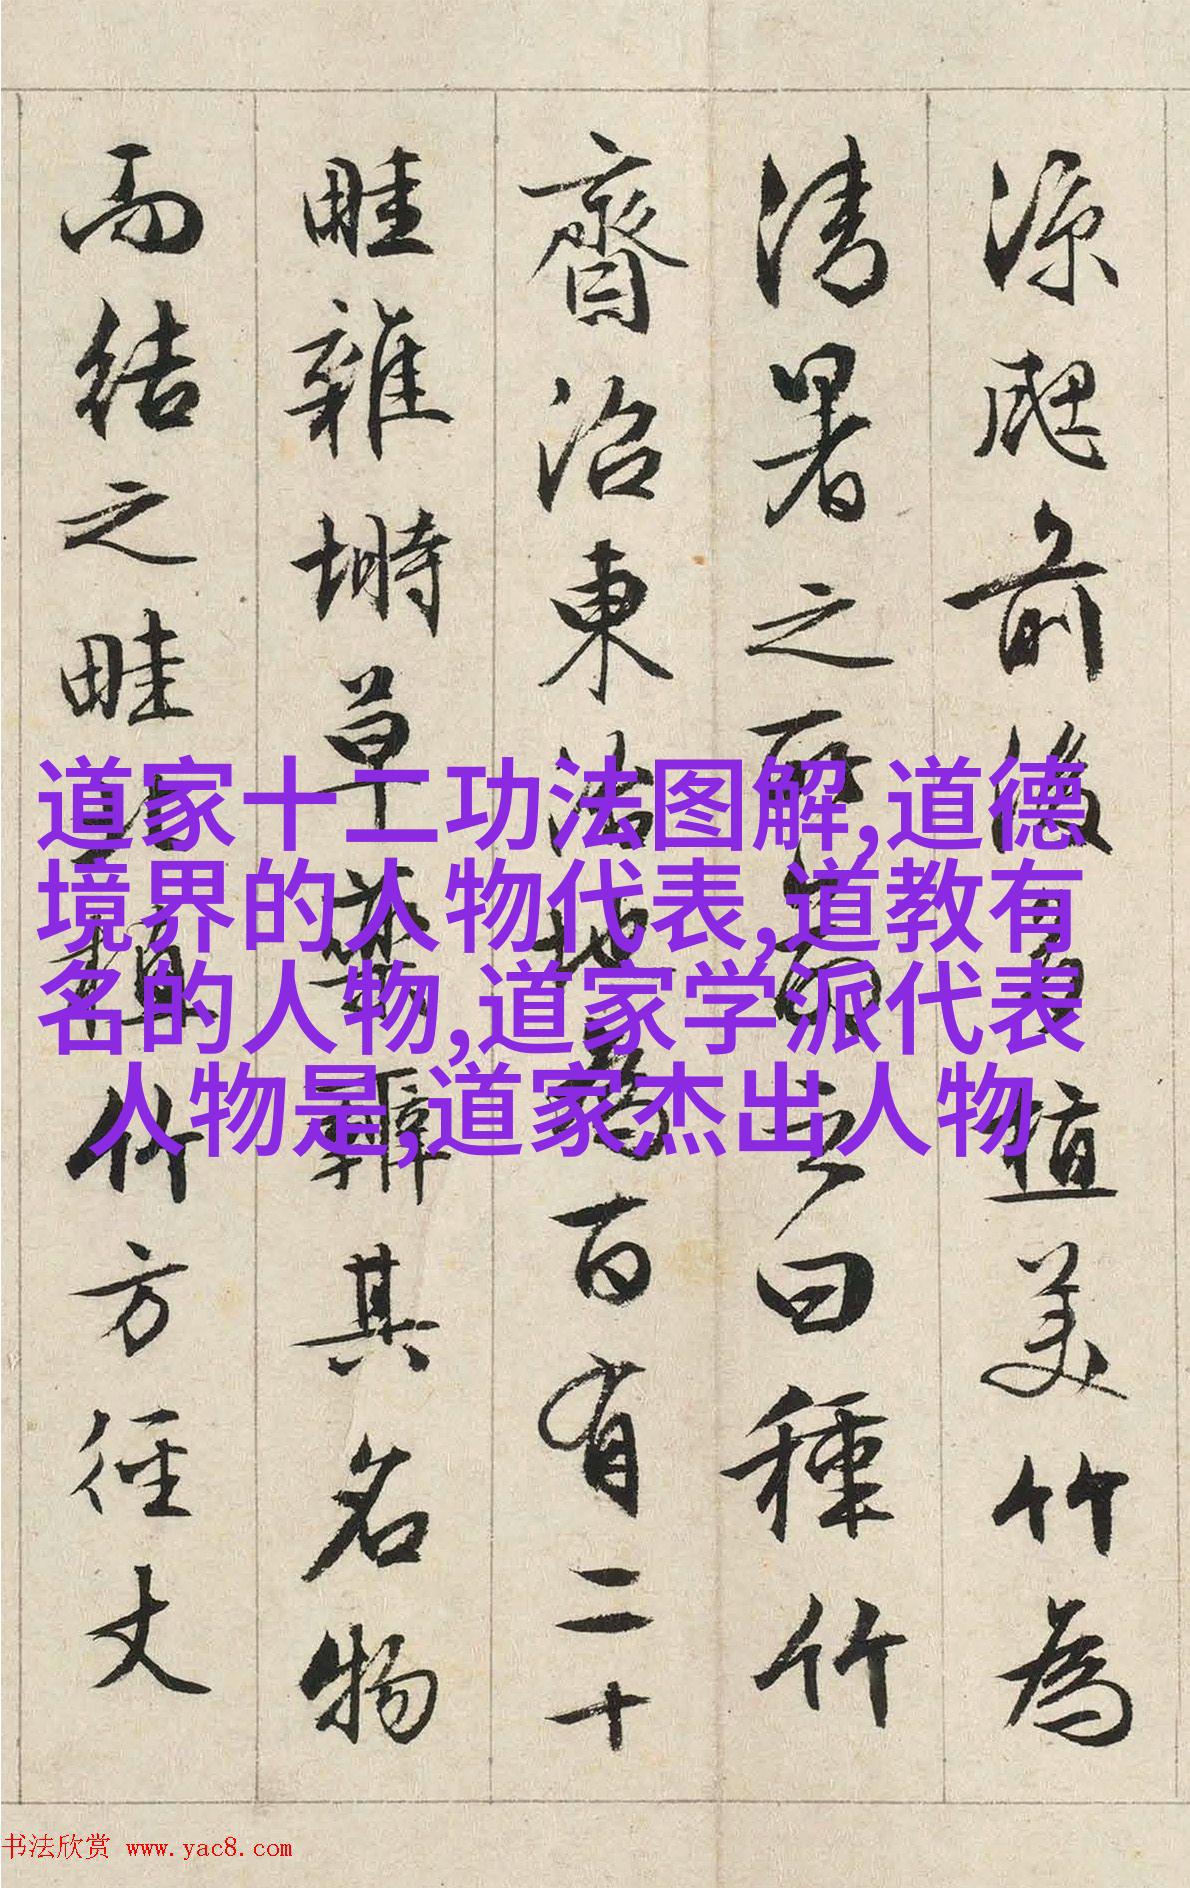 涼颸前後多植美竹為
清暑之所命之曰種竹
齋沼東治地為百有二十
畦雜蒔草藥辨其名物
而結之畦北植竹方徑丈
道家十二功法图解,道德
境界的人物代表,道教有
名的人物,道家学派代表
人物是,道家杰出人物
书法欣赏 www.yac8.com